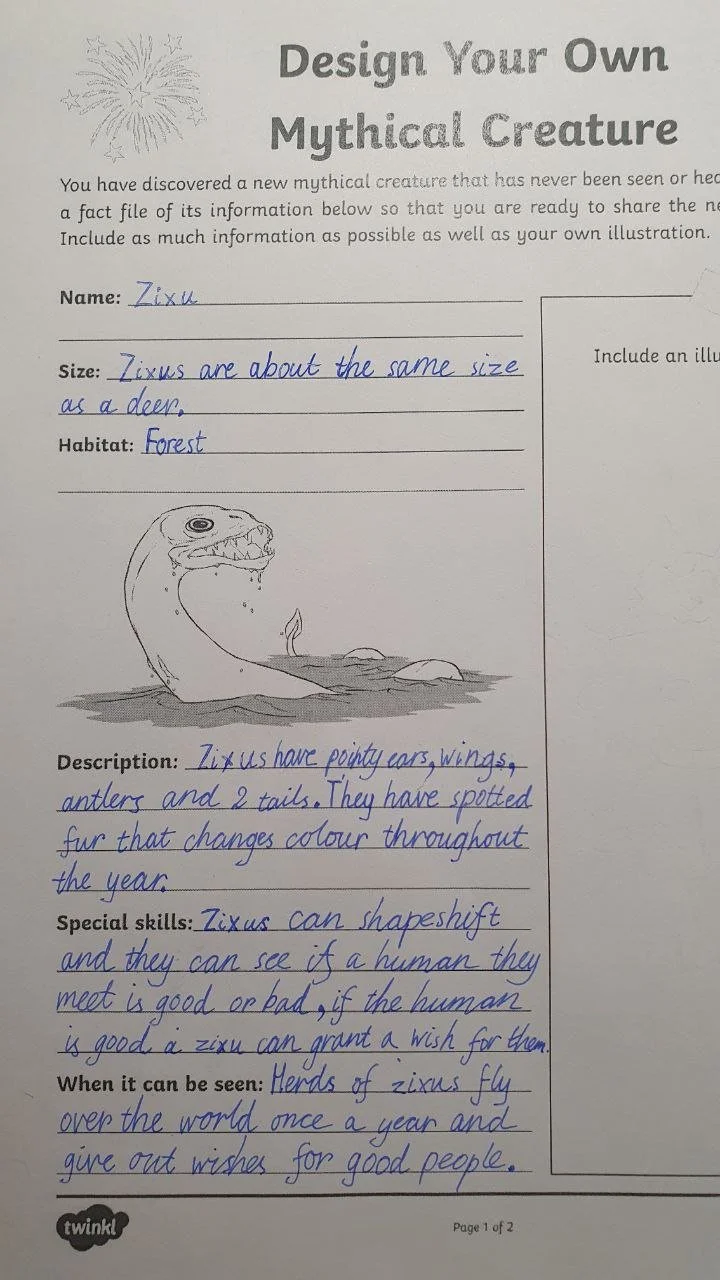 Design Your Own
Mythical Creature
You have discovered a new mythical creature that has never been seen or
a fact file of its information below so that you are ready to share the
Include as much information as possible as well as your own illustration.
Name: Zixu
Size: Zixus are about the same size
as a deer.
Habitat: Forest
Include an
Description: Zixus have pointy ears, wings,
antlers and 2 tails. They have spotted
fur that changes colour throughout
the year.
Special skills: Zixus can shapeshift
and they can see if a human they
meet is good or bad, if the human
is good a zixu can grant a wish for them.
When it can be seen: Herds of zixus fly
over the world once a year and
give out wishes for good people.
twinkl
Page 1 of 2